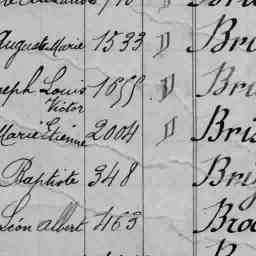 Auguste Marie 1533 D Br
seph Louis Victor 1855 D Br
Marie Etienne 2004 D Bri
Baptiste 348 Bri
Léon Albert 463 Bro